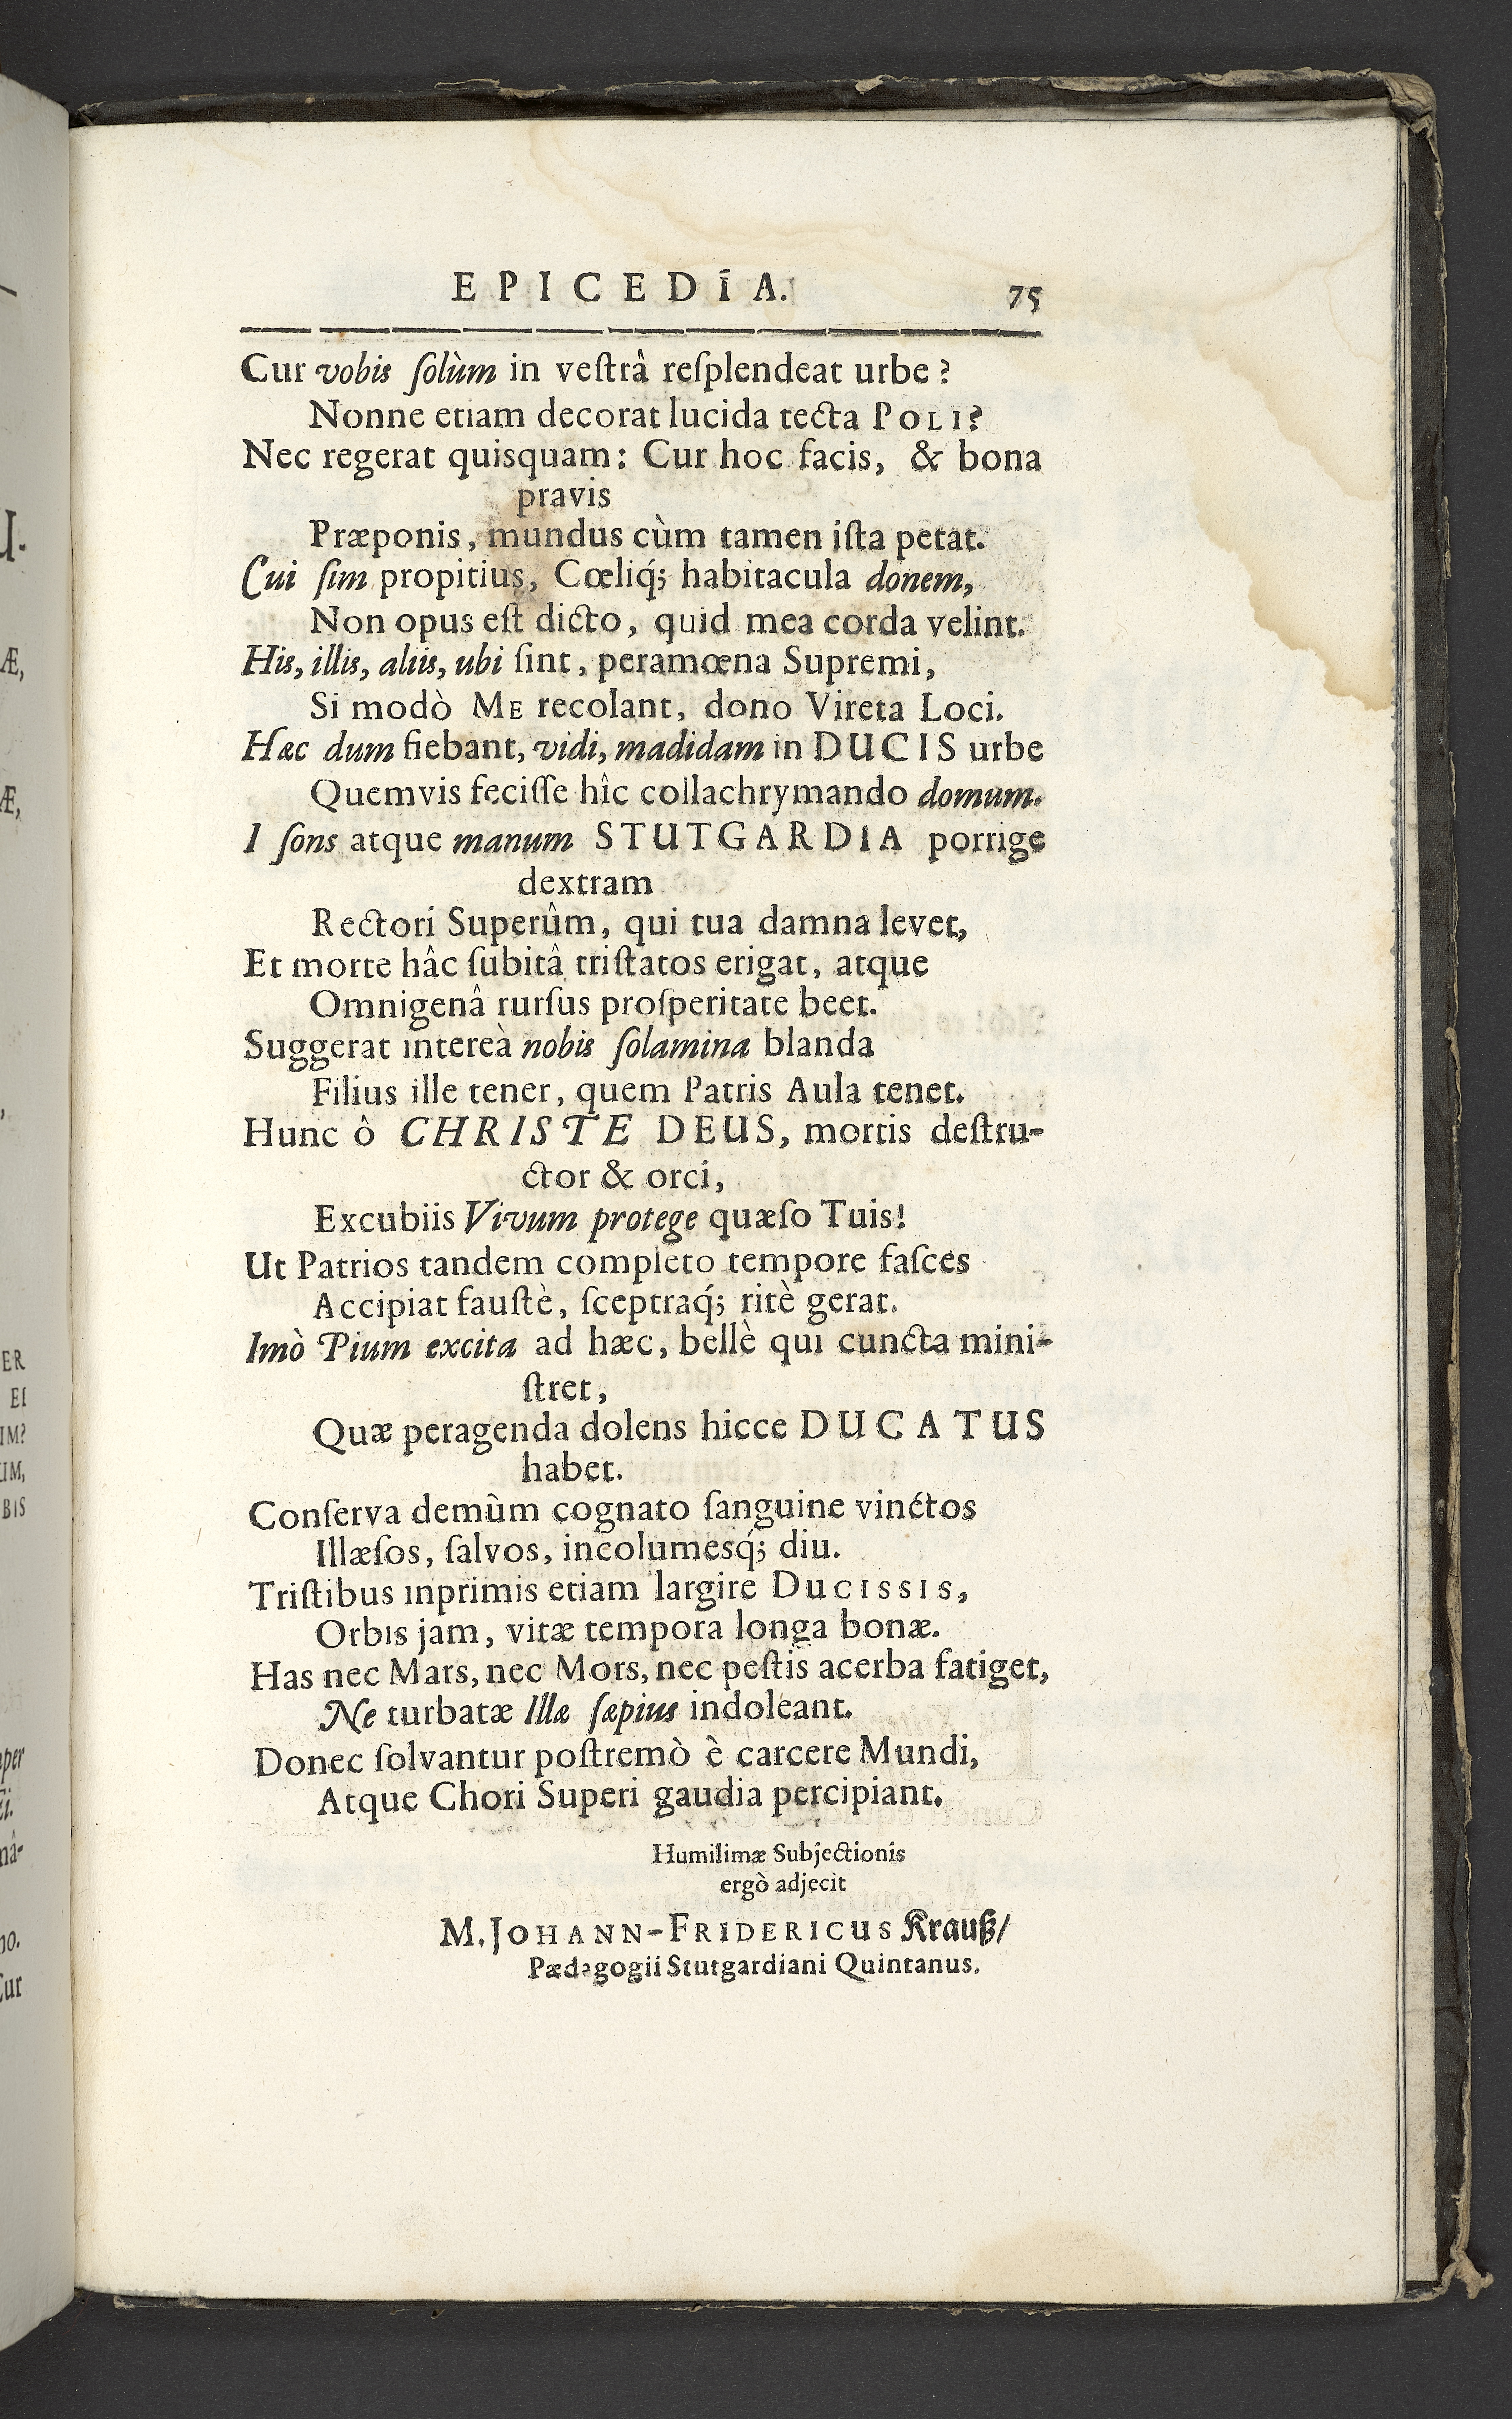 EPICEDIA. 75
Cur vobis ſolùm in veſtrâ reſplendeat urbe?
Nonne etiam decorat lucida tecta POLI?
Nec regerat quisquam: Cur hoc facis, & bona
pravis
Præponis, mundus cùm tamen iſta petat.
Cui ſim propitius, Cœliq́; habitacula donem,
Non opus eſt dicto, quid mea corda velint.
His, illis, aliis, ubi ſint, peramœna Supremi,
Si modò ME recolant, dono Vireta Loci.
Hæc dum fiebant, vidi, madidam in DUCIS urbe
Quemvis feciſſe hîc collachrymando domum.
I ſons atque manum STUTGARDIA porrige
dextram
Rectori Superûm, qui tua damna levet,
Et morte hâc ſubitâ triſtatos erigat, atque
Omnigenâ rurſus proſperitate beet.
Suggerat intereà nobis ſolamina blanda
Filius ille tener, quem Patris Aula tenet.
Hunc ô CHRISTE DEUS, mortis deſtru-
ctor & orci,
Excubiis Vivum protege quæſo Tuis!
Ut Patrios tandem completo tempore faſces
Accipiat fauſtè, ſceptraq́; ritè gerat.
Imò Pium excita ad hæc, bellè qui cuncta mini-
ſtret,
Quæ peragenda dolens hicce DUCATUS
habet.
Conſerva demùm cognato ſanguine vinctos
Illæſos, ſalvos, incolumesq́; diu.
Triſtibus inprimis etiam largire DUCISSIS,
Orbis jam, vitæ tempora longa bonæ.
Has nec Mars, nec Mors, nec peſtis acerba fatiget,
Ne turbatæ Illæ ſæpius indoleant.
Donec ſolvantur poſtremò è carcere Mundi,
Atque Chori Superi gaudia percipiant.
Humilimæ Subjectionis
ergò adjecit
M. JOHANN-FRIDERICUS Krauß/
Pædagogii Stutgardiani Quintanus.